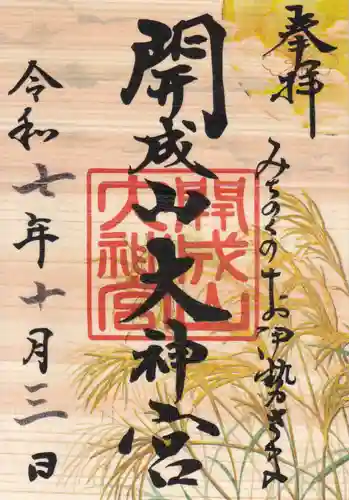 奉拝
みちのくのおゐ勢さま
開成山大神宮
開成山
大神宮
令和七年十月三日